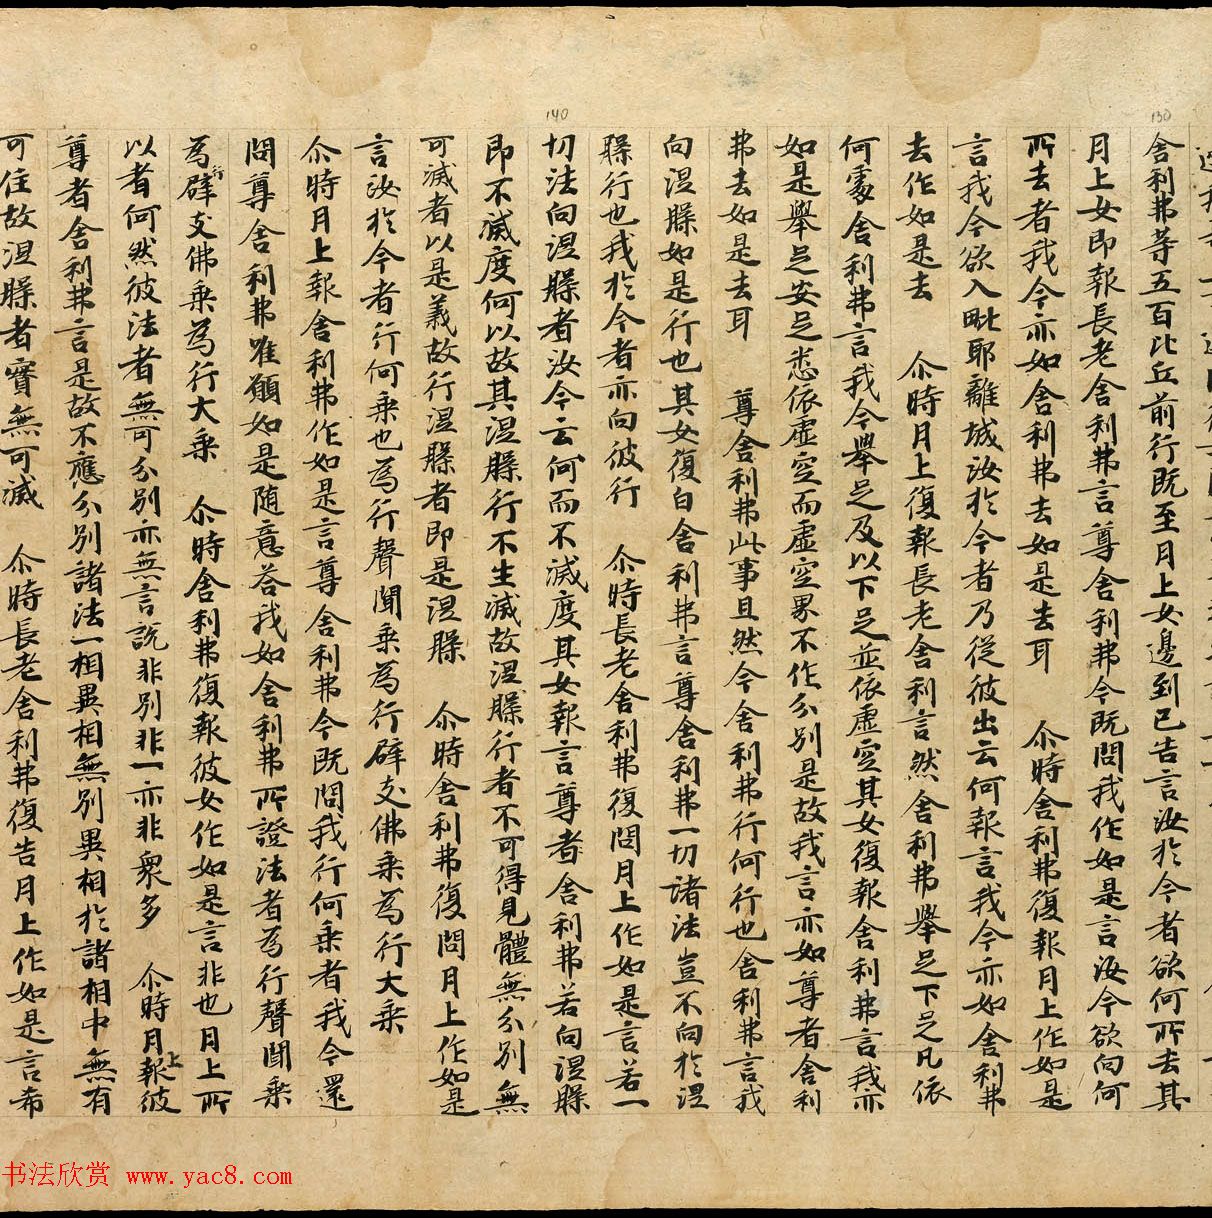 140
130
舍利弗等五百比丘前行既至月上女邊到已告言汝於今者欲何所去其
月上女即報長老舍利弗言尊舍利弗今既問我作如是言汝今欲向何
所去者我今亦如舍利弗去如是去耳 尒時舍利弗復報月上作如是
言我今欲入毗耶離城汝於今者乃從彼出云何報言我今亦如舍利弗
去作如是去 尒時月上復報長老舍利言然舍利弗舉足下足凡依
何處舍利弗言我今舉足及以下足並依虛空其女復報舍利弗言我亦
如是舉足安足悉依虛空而虛空界不作分別是故我言亦如尊者舍利
弗去如是去耳 尊舍利弗此事且然今舍利弗行何行也舍利弗言我
向涅槃如是行也其女復白舍利弗言尊舍利弗一切諸法豈不向於涅
槃行也我於今者亦向彼行 尒時長老舍利弗復問月上作如是言若一
切法向涅槃者汝今云何而不滅度其女報言尊者舍利弗若向涅槃
即不滅度何以故其涅槃行不生滅故涅槃行者不可得見體無分別無
可滅者以是義故行涅槃者即是涅槃 尒時舍利弗復問月上作如是
言汝於今者行何乘也為行聲聞乘為行辟支佛乘為行大乘
尒時月上報舍利弗作如是言尊舍利弗今既問我行何乘者我今還
問尊舍利弗唯願如是随意荅我如舍利弗所證法者為行聲聞乘
為行辟支佛乘為行大乘 尒時舍利弗復報彼女作如是言非也月上所
以者何然彼法者無可分別亦無言說非別非一亦非衆多 尒時月上報彼
尊者舍利弗言是故不應分別諸法一相異相無別異相於諸相中無有
可住故涅槃者實無可滅 尒時長老舍利弗復告月上作如是言希
书法欣赏 www.yac8.com